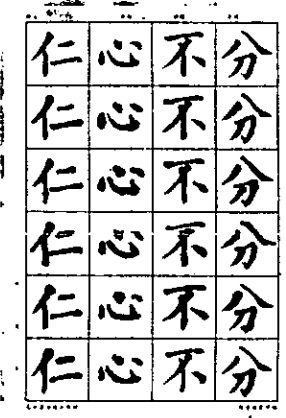 仁心不分
仁心不分
仁心不分
仁心不分
仁心不分
仁心不分